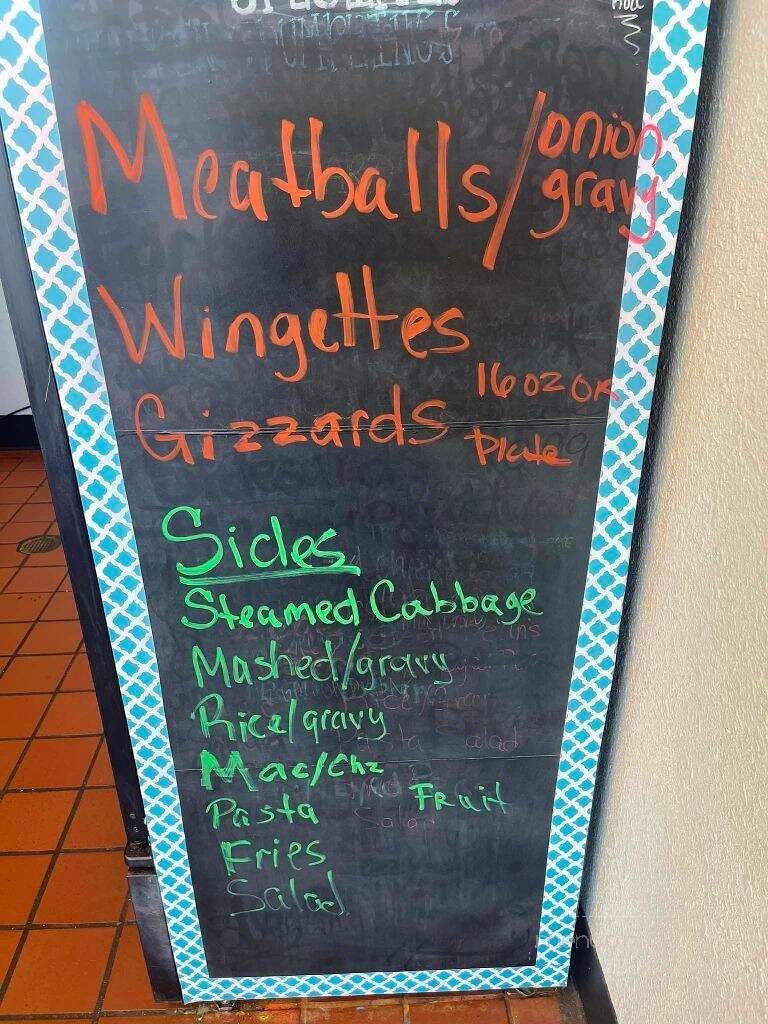 Meatballs/onion gravy
Wingettes
Gizzards 16 oz or Plate
Sides
Steamed Cabbage
Mashed/gravy
Rice/gravy
Mac/Chz
Pasta Fruit
Fries
Salad